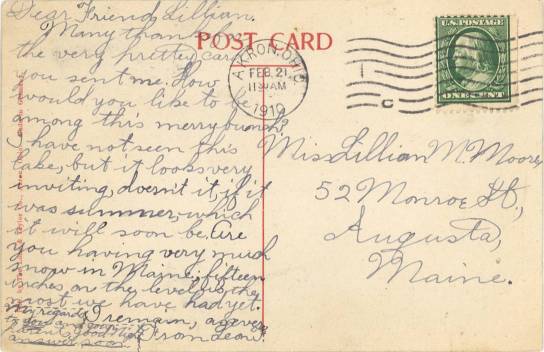 Dear Friend Lillian.
Many thanks
the very pretty card
you sent me. How
would you like to be
among this merry bunch?
I have not seen this
lake, but it looks very
inviting, doesn't it, if it
was summer, which
it will soon be. Are
you having very much
snow in Maine; fifteen
inches, on the level, is the
most we have had yet.
My regards
I remain, as ever,
to you and your
From Leon.
answer soon.
POST CARD
AKRON, OHIO
FEB. 21
11 30 AM
1910
U.S. POSTAGE
ONE CENT
Miss Lillian M. Moore,
52 Monroe St.,
Augusta,
Maine.